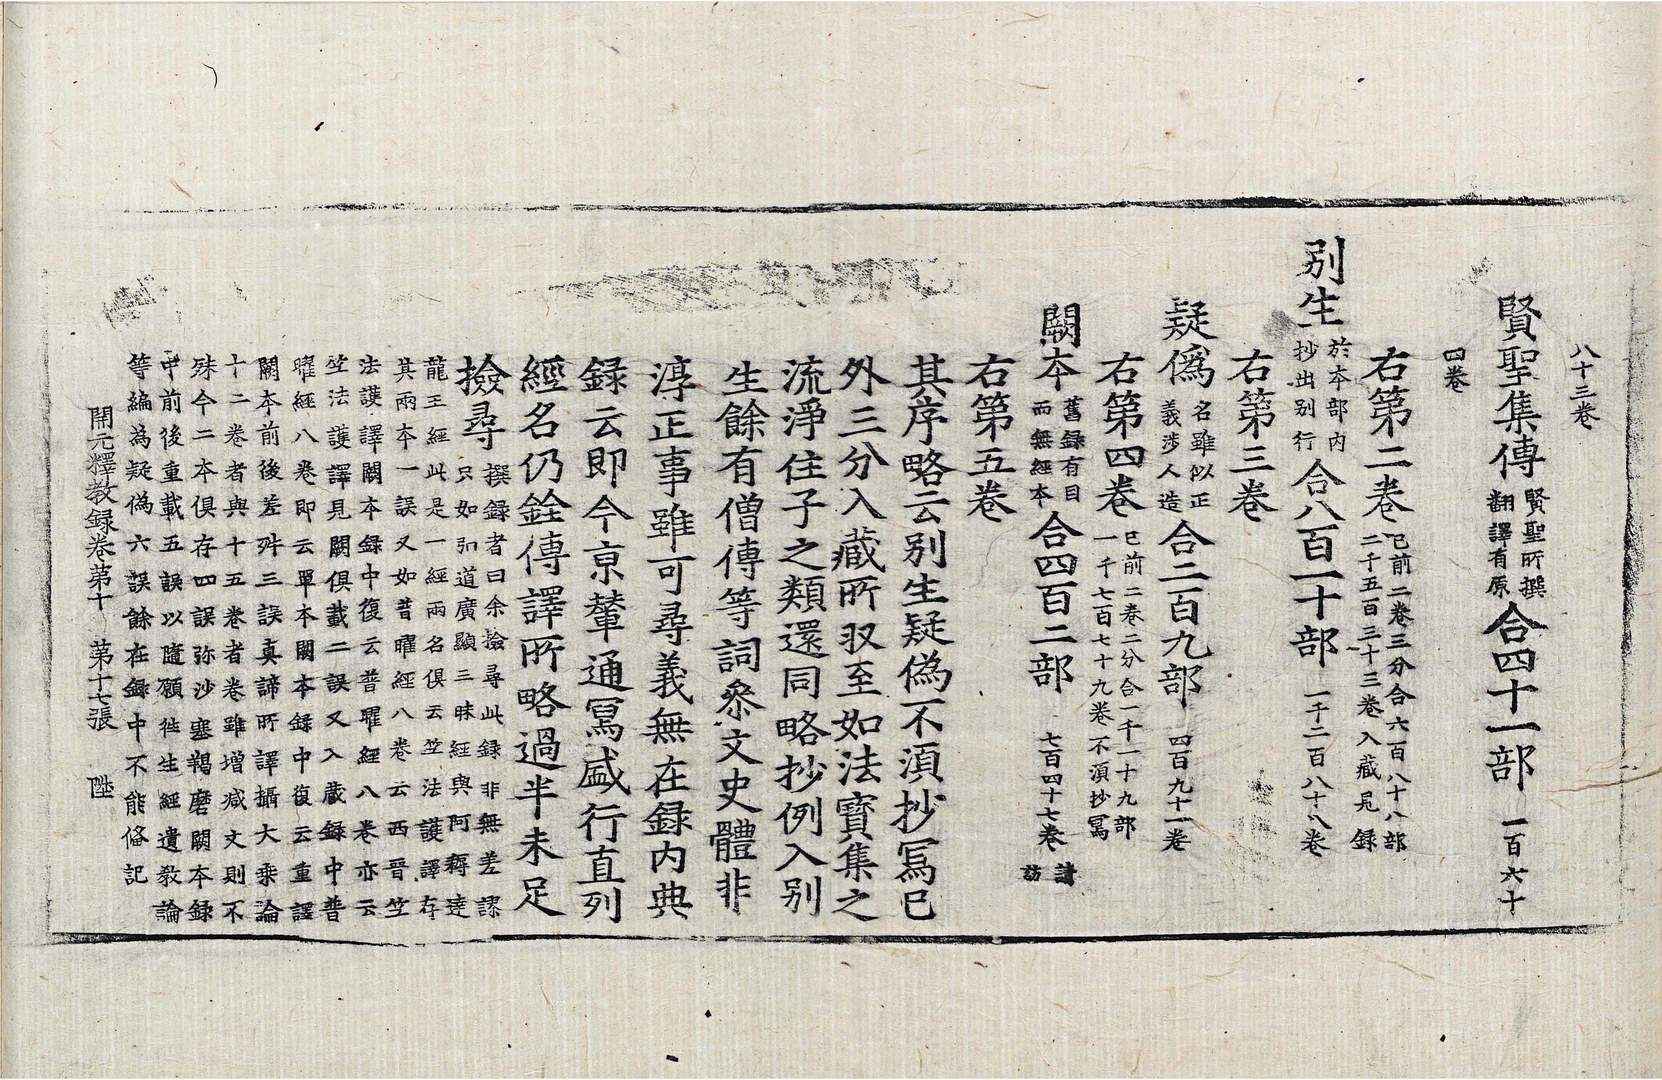 八十三卷
賢聖集傳 賢聖所撰翻譯有原 合四十一部 一百六十
四卷
右第二卷 已前二卷三分合六百八十八部二千五百三十三卷入藏見録
別生 於本部内抄出別行 合八百一十部 一千二百八十八卷
右第三卷
疑僞 名雖似正義涉人造 合二百九部 四百九十一卷
右第四卷 已前二卷二分合一千一十九部一千七百七十九卷不湏抄冩
闕本 舊録有目而無經本 合四百二部 七百四十七卷 請訪
右第五卷
其序略云別生疑偽不湏抄冩已
外三分入藏所収至如法寶集之
流淨住子之類還同略抄例入別
生餘有僧傳等詞叅文史體非
淳正事雖可尋義無在録内典
録云即今京輦通冩盛行直列
經名仍銓傳譯所略過半未足
撿尋 撰録者曰余撿尋此録非無差謬
只如弘道廣顯三昧經與阿耨達
龍王經此是一經兩名俱云竺法護譯存
其兩本一誤又如普曜經八卷云西晉竺
法護譯闕本録中復云普曜經八卷亦云
竺法護譯見闕俱載二誤又入藏録中普
曜經八卷即云單本闕本録中復云重譯
闕本前後差舛三誤真諦所譯攝大乘論
十二卷者與十五卷者卷雖增減文則不
殊今二本俱存四誤弥沙塞羯磨闕本録
中前後重載五誤以隨願徃生經遺教論
等編為疑偽六誤餘在録中不能俻記
開元釋教録卷第十 第十七張 陞